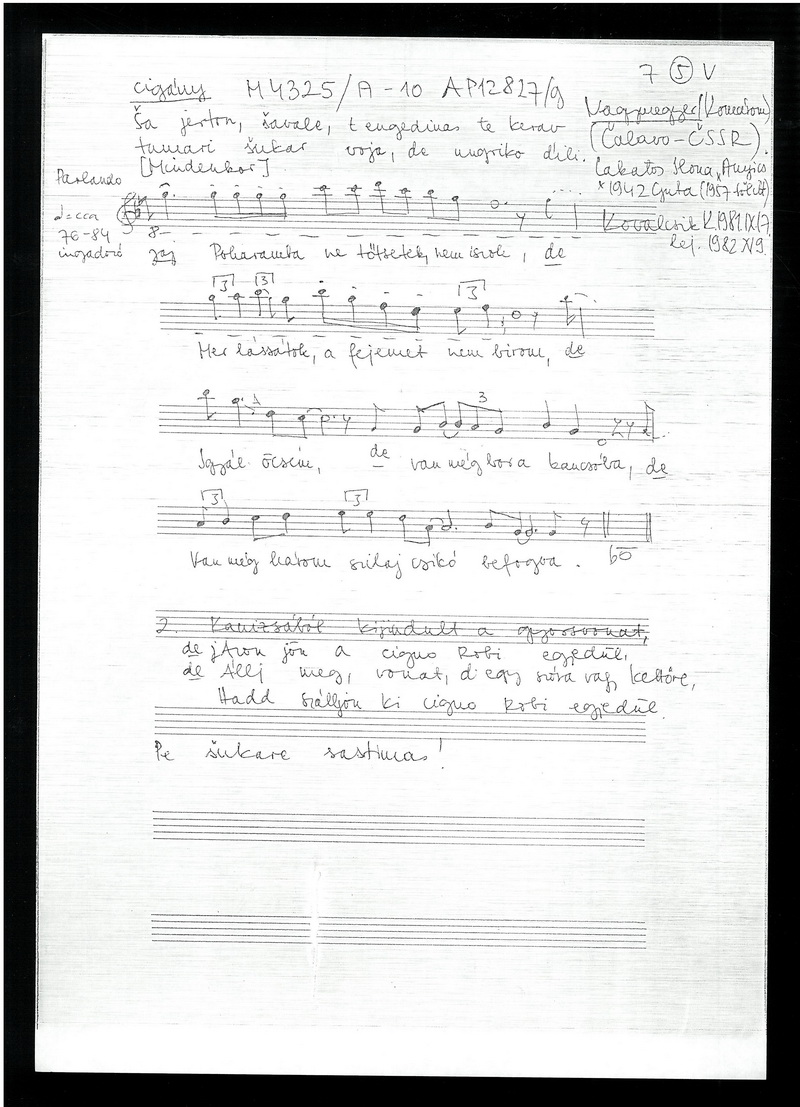 7 ⑤ V
cigány M4325/A-10 AP12827/g
Ša jerton, šavale, t engedinas te kerav
tumari šukar voja, de ungriko dili.
[Mindenkor]
Nagymegyer (Komárom)
(Čalavo-ČSSR).
Lakatos Ilona,
*1942 Guta (1957 től itt)
Kovalcsik K. 1981.IX.17.
lej. 1982 XI 9.
Parlando
♩=cca
76-84
ingadozó
8
jaj Poharamba ne töltsetek, nem iszok, de
3 3 3
Mer lássátok, a fejemet nem birom, de
3
Igyál öcsém, de van még bor a kancsóba, de
3 3
Van még három szilaj csikó befogva.
2. Kanizsából kijindult a gyorsvonat,
de jAvon jön a cigno Robi egjedül,
de Állj meg, vonat, d'egy szóra vagy kettőre,
Hadd szálljon ki cigno Robi egjedül.
Pe šukare sastimas!